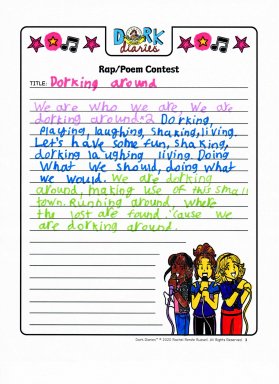 DORK
diaries
Rap/Poem Contest
TITLE: Dorking around
We are who we are, We are
dorking around×2 Dorking,
Playing, laughing, shaking, living.
Let's have some fun, shaking,
dorking laughing living. Doing
What We should, doing what
we would. We are dorking
around, making use of this small
town. Running around, where
the lost are found. 'cause we
are dorking around.
Dork Diaries™ © 2020 Rachel Renée Russell. All Rights Reserved. 3